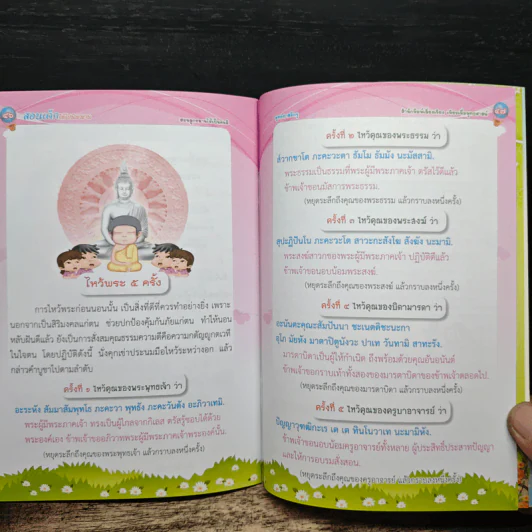 สอนหนู
ไหว้พระ ๕ ครั้ง
การไหว้พระก่อนนอนนั้น เป็นสิ่งที่ดีที่ควรทำอย่างยิ่ง เพราะ
นอกจากเป็นสิริมงคลแก่ตน ช่วยปกป้องคุ้มกันภัยแก่ตน ทำให้นอน
หลับฝันดีแล้ว ยังเป็นการสั่งสมคุณธรรมความดีคือความกตัญญูกตเวที
ในใจตน โดยปฏิบัติดังนี้ นั่งคุกเข่าประนมมือไหว้ระหว่างอก แล้ว
กล่าวคำบูชาไปตามลำดับ
ครั้งที่ ๑ ไหว้คุณของพระพุทธเจ้า ว่า
อะระหัง สัมมาสัมพุทโธ ภะคะวา พุทธัง ภะคะวันตัง อะภิวาเทมิ.
พระผู้มีพระภาคเจ้า ทรงเป็นผู้ไกลจากกิเลส ตรัสรู้ชอบได้ด้วย
พระองค์เอง ข้าพเจ้าขออภิวาทพระผู้มีพระภาคเจ้าพระองค์นั้น.
(หยุดระลึกถึงคุณของพระพุทธเจ้า แล้วกราบลงหนึ่งครั้ง)
ครั้งที่ ๒ ไหว้คุณของพระธรรม ว่า
ส๎วากขาโต ภะคะวะตา ธัมโม ธัมมัง นะมัสสามิ.
พระธรรมเป็นธรรมที่พระผู้มีพระภาคเจ้า ตรัสไว้ดีแล้ว
ข้าพเจ้าขอนมัสการพระธรรม.
(หยุดระลึกถึงคุณของพระธรรม แล้วกราบลงหนึ่งครั้ง)
ครั้งที่ ๓ ไหว้คุณของพระสงฆ์ ว่า
สุปะฏิปันโน ภะคะวะโต สาวะกะสังโฆ สังฆัง นะมามิ.
พระสงฆ์สาวกของพระผู้มีพระภาคเจ้า ปฏิบัติดีแล้ว
ข้าพเจ้าขอนอบน้อมพระสงฆ์.
(หยุดระลึกถึงคุณของพระสงฆ์ แล้วกราบลงหนึ่งครั้ง)
ครั้งที่ ๔ ไหว้คุณของบิดามารดา ว่า
อะนันตะคุณะสัมปันนา ชะเนตติชะนะกา
อุโภ มัยหัง มาตาปิตูนังวะ ปาเท วันทามิ สาทะรัง.
มารดาบิดาเป็นผู้ให้กำเนิด ถึงพร้อมด้วยคุณอันอนันต์
ข้าพเจ้าขอกราบเท้าทั้งสองของมารดาบิดาของข้าพเจ้าตลอดไป.
(หยุดระลึกถึงคุณของมารดาบิดา แล้วกราบลงหนึ่งครั้ง)
ครั้งที่ ๕ ไหว้คุณของครูบาอาจารย์ ว่า
ปัญญาวุฑฒิกะเร เต เต ทินโนวาเท นะมามิหัง.
ข้าพเจ้าขอนอบน้อมครูอาจารย์ทั้งหลาย ผู้ประสิทธิ์ประสาทปัญญา
และให้การอบรมสั่งสอน.
(หยุดระลึกถึงคุณของครูอาจารย์ แล้วกราบลงหนึ่งครั้ง)